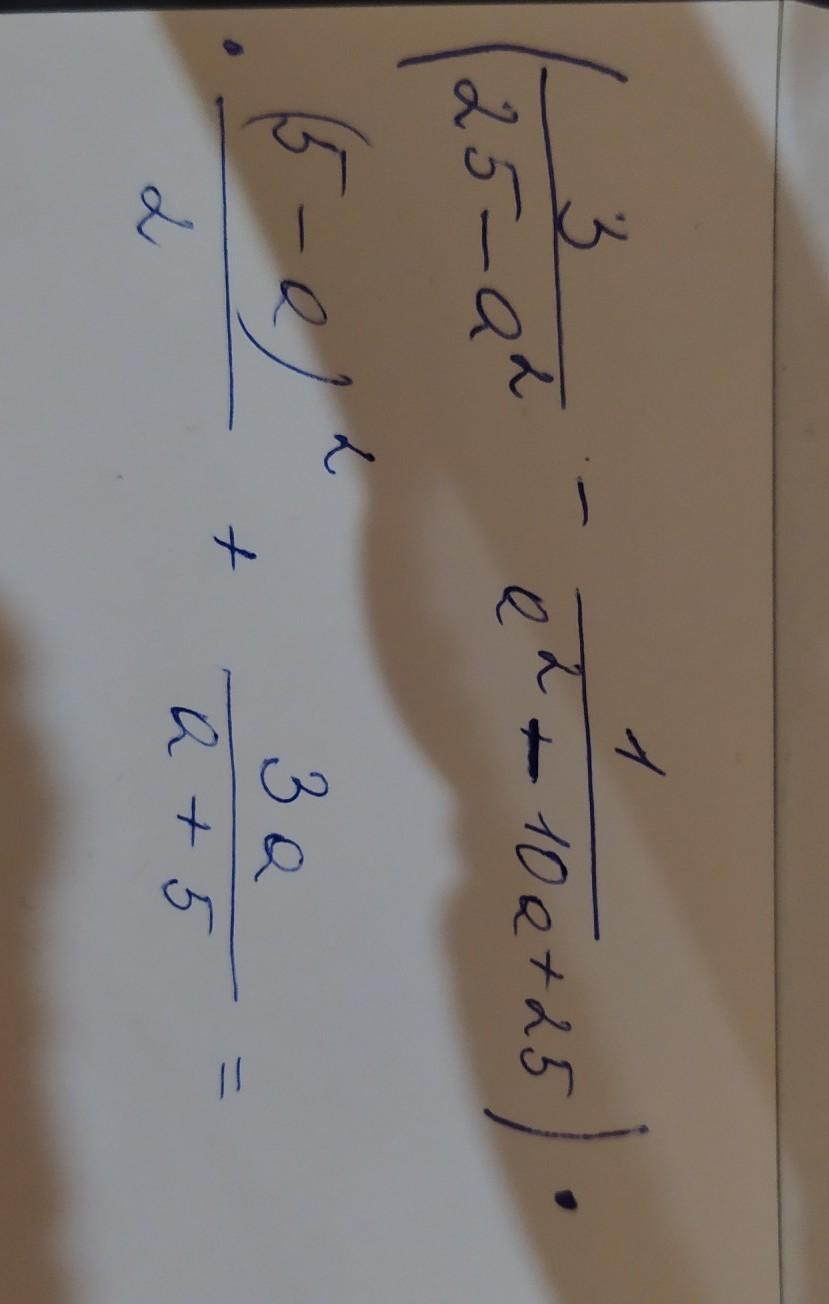 (3/(25-a²) - 1/(a²-10a+25)) ·
· (5-a)²/2 + 3a/(a+5) =